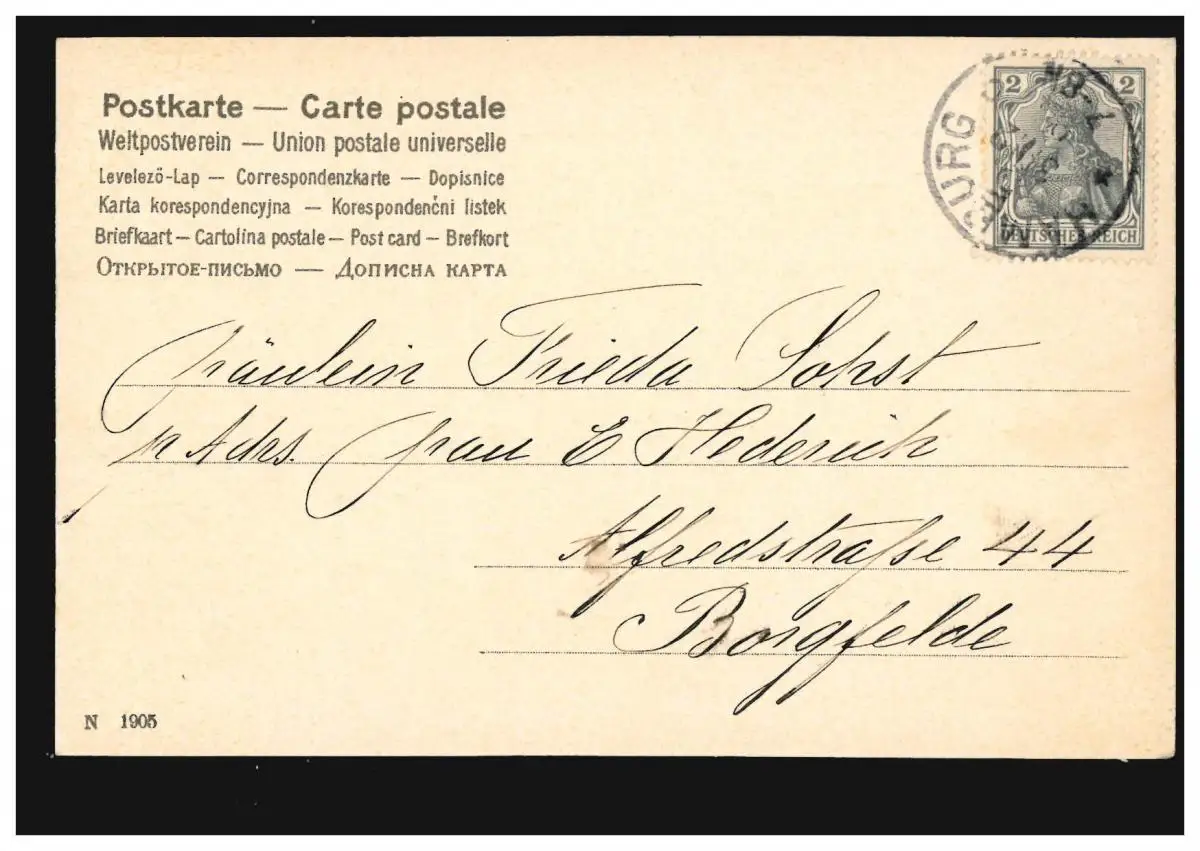 Postkarte — Carte postale
Weltpostverein — Union postale universelle
Levelező-Lap — Correspondenzkarte — Dopisnice
Karta korespondencyjna — Korespondenčni listek
Briefkaart — Cartolina postale — Post card — Brefkort
Открытое-письмо — Дописна карта
2 2
DEUTSCHES REICH
BURG
Fräulein Frieda Sohst
pr Adrs. Frau E Hederich
Alfredstraße 44
Borgfelde
N 1905